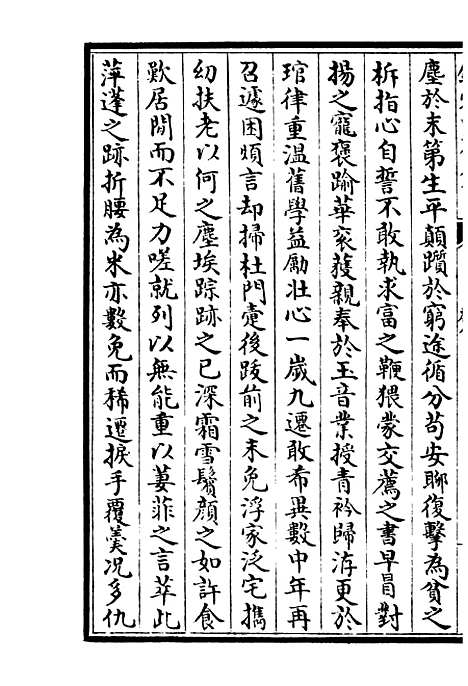 塵於末第生平顛躓於窮途循分苟安聊復擊為貧之
柝指心自誓不敢執求富之鞭猥蒙交薦之書早冒對
揚之寵褒踰華衮䕶親奉於玉音業授青衿歸㳺更於
琯律重温舊學益勵壯心一嵗九遷敢希異數中年再
召遽困煩言却掃杜門疐後跋前之未免浮家泛宅擕
幼扶老以何之塵埃踪跡之已深霜雪鬢顔之如許食
歎居閒而不足力嗟就列以無能重以萋菲之言萃此
萍蓬之跡折腰為米亦數免而稀遷捩手覆羮况多仇